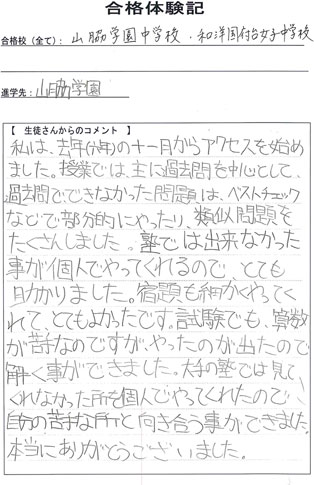 合格体験記
合格校(全て): 山脇学園中学校・和洋国府台女子中学校
進学先: 山脇学園
【 生徒さんからのコメント 】
私は、去年(6年)の十一月からアクセスを始め
ました。授業では、主に過去問を中心として、
過去問でできなかった問題は、ベストチェック
などで部分的にやったり、類似問題を
たくさんしました。塾では出来なかった
事が個人でやってくれるので、とても
助かりました。宿題も細かくやってく
れて、とてもよかったです。試験でも、算数
が苦手なのですが、やったのが出たので
解く事ができました。大手の塾では見て
くれなかった所を個人でやってくれたので、
自分の苦手な所と向き合う事ができました。
本当にありがとうございました。